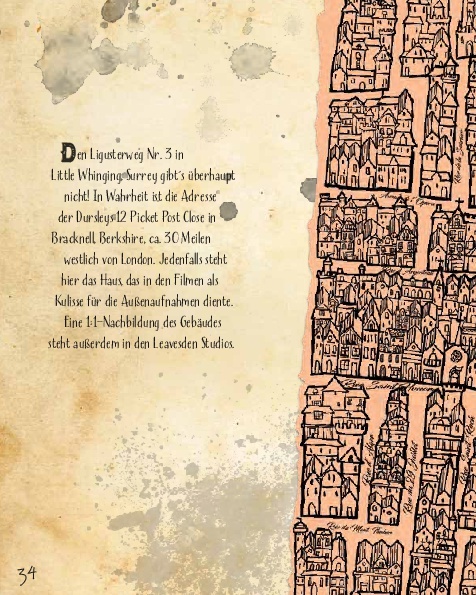 Den Ligusterweg Nr. 3 in
Little Whinging, Surrey gibt's überhaupt
nicht! In Wahrheit ist die Adresse
der Dursleys 12 Picket Post Close in
Bracknell, Berkshire, ca. 30 Meilen
westlich von London. Jedenfalls steht
hier das Haus, das in den Filmen als
Kulisse für die Außenaufnahmen diente.
Eine 1:1-Nachbildung des Gebäudes
steht außerdem in den Leavesden Studios.
Rue du 29 Juillet
Rue du Mont Thabor
34